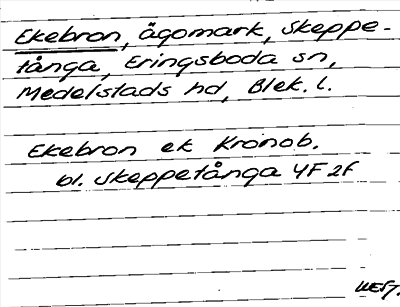 Ekebron, ägomark, Skeppe-
tånga, Eringsboda sn,
Medelstads hd, Blek. l.
Ekebron ek Kronob.
bl. Skeppetånga 4F 2f